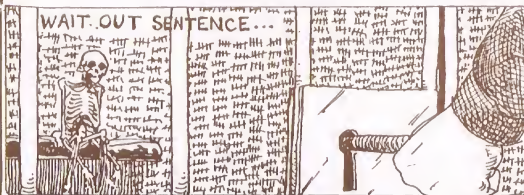 WAIT OUT SENTENCE...